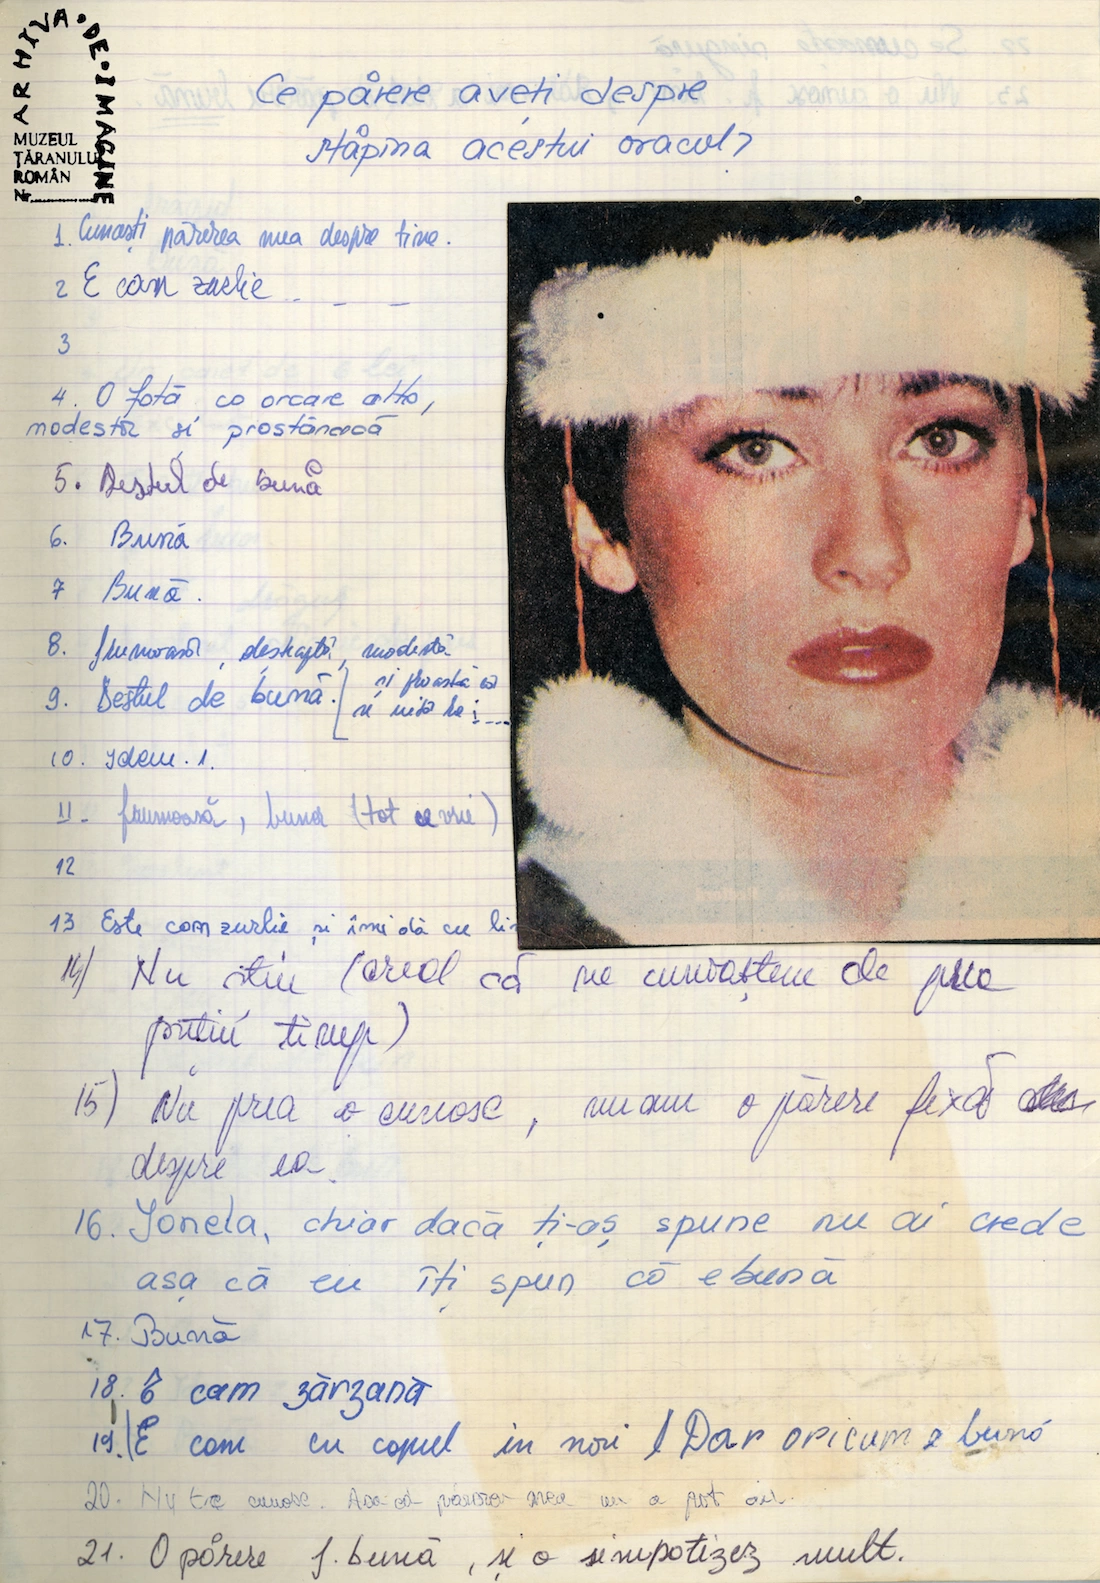 ARHIVA·DE·IMAGINE
MUZEUL
ȚĂRANULUI
ROMÂN
Nr.
Ce părere aveți despre
stăpîna acestui oracol?
1. Cunoști părerea mea despre tine.
2 E cam zurlie _ _ _
3
4. O fată ca orcare alta,
modestă și prostănacă
5. Destul de bună
6. Bună
7 Bună.
8. frumoasă, deșteaptă, modestă
și proastă ca
9. Destul de bună.
și
10. Idem. 1.
11 - frumoasă, buna (tot ce vrei)
12
13 Este cam zurlie și îmi dă cu
14) Nu știu (cred că ne cunoaștem de prea
puțin timp)
15) Nu prea o cunosc, nu am o părere fixă
despre ea.
16. Ionela, chiar dacă ți-aș spune nu ai crede
așa că eu îți spun că e bună
17. Bună
18. E cam zărzană
19. E cam cu capul in nori! Dar oricum e bună
20. Nu te cunosc. Asa că părerea mea nu o pot
21. O părere f. bună, și o simpatizez mult.